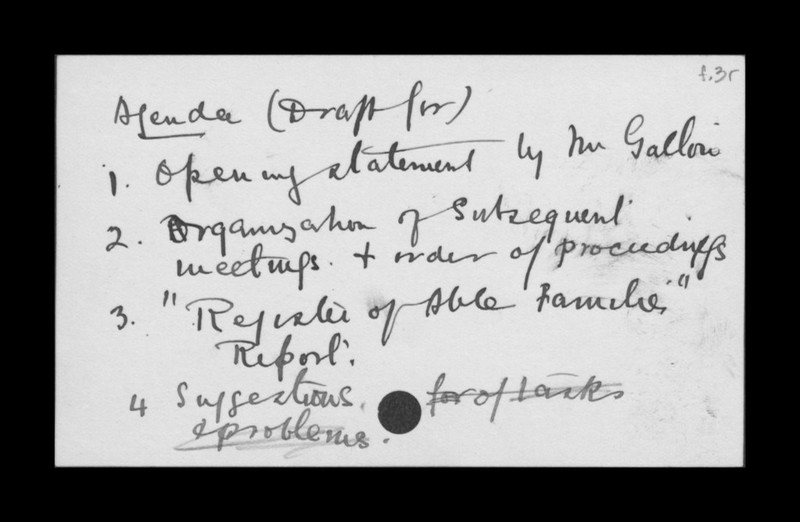 f.3r
Agenda (Draft for)
1. Opening statement by Mr Galton
2. Organization of Subsequent
meetings. + order of proceedings
3. "Register of Able Families"
Report.
4 Suggestions. for of tasks
& problems.